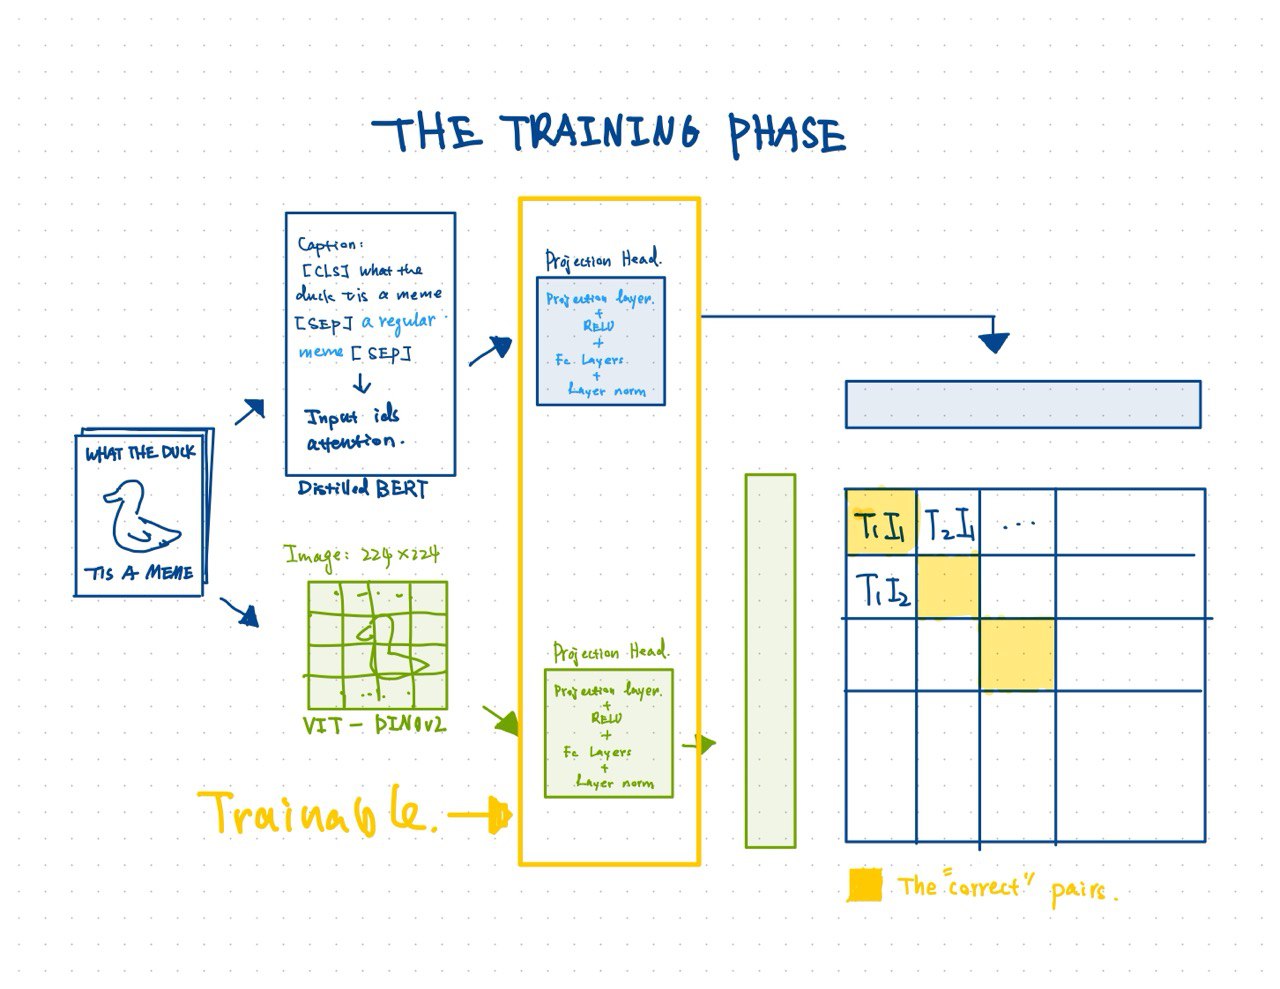 THE TRAINING PHASE
WHAT THE DUCK
TIS A MEME
Caption:
[CLS] what the
duck tis a meme
[SEP] a regular
meme [SEP]
Input ids
attention.
Distilled BERT
Image: 224×224
VIT - DINOv2
Trainable.
Projection Head.
Projection layer.
+
RELU
+
Fc Layers
+
Layer norm
Projection Head.
Projection layer.
+
RELU
+
Fc Layers
+
Layer norm
T1I1 T2I1 ...
T1I2
The "correct" pairs.